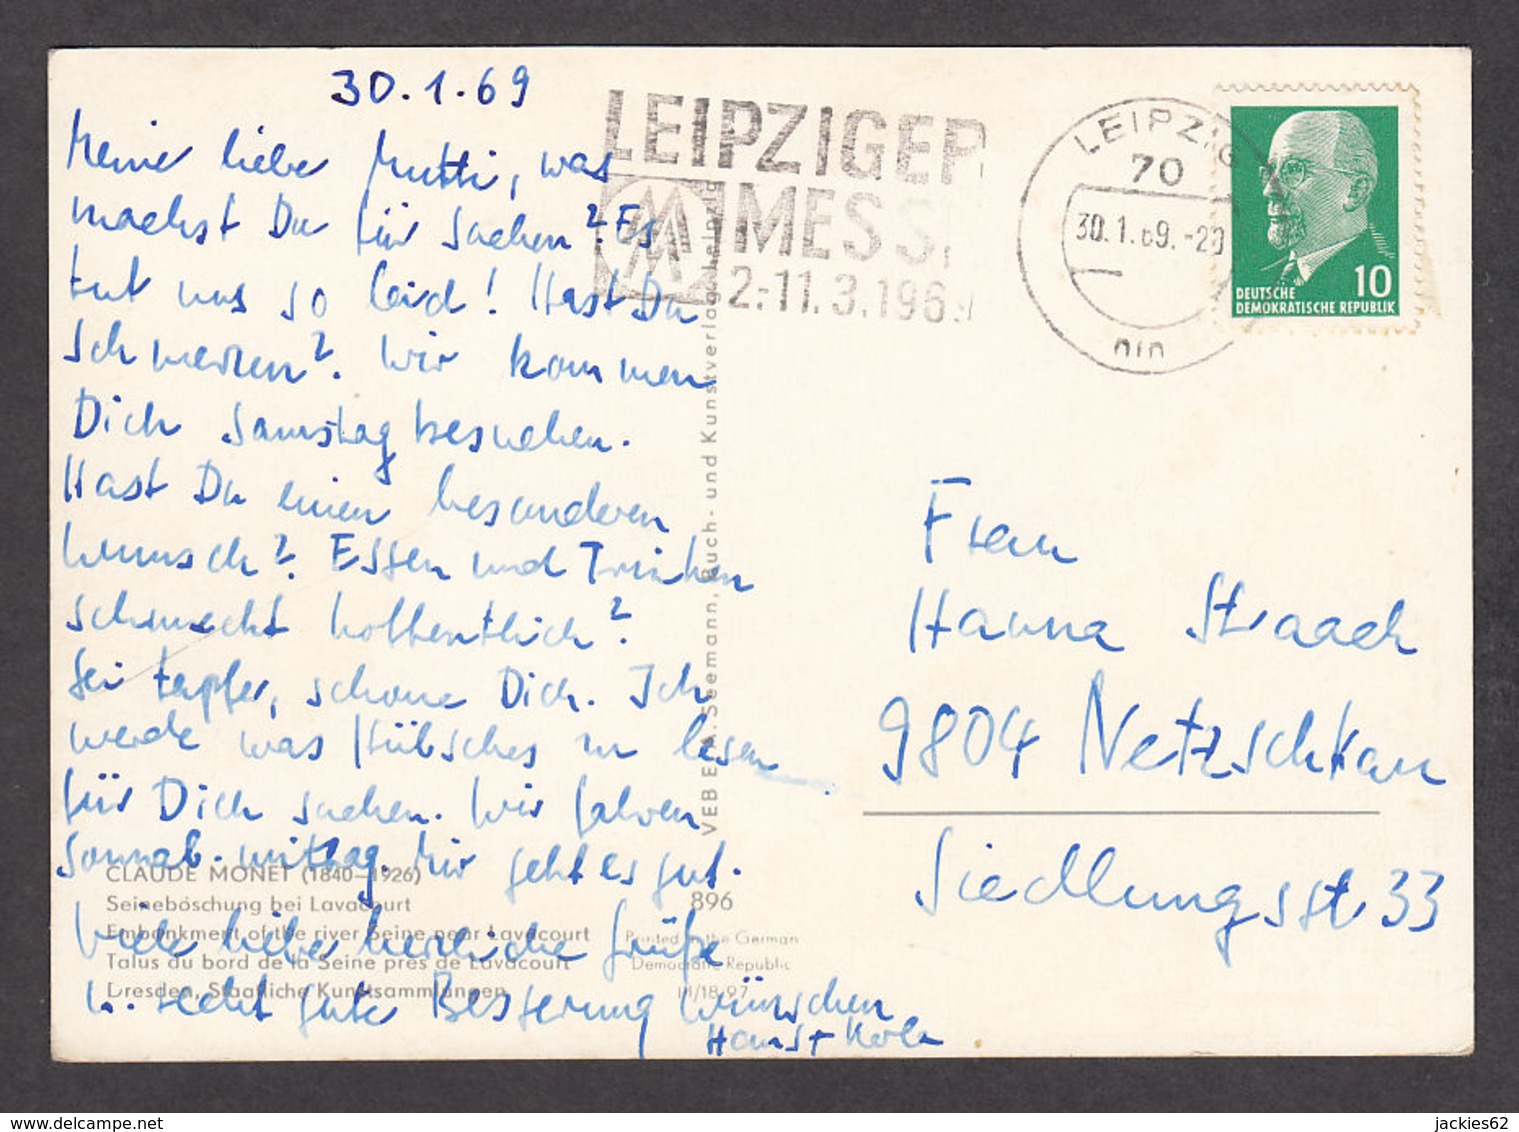 30.1.69
Meine liebe Mutti, was
machst Du für Sachen? Es
tut uns so leid! Hast Du
Schmerzen? Wir kommen
Dich Samstag besuchen.
Hast Du einen besonderen
Wunsch? Essen und Trinken
schmeckt hoffentlich?
Sei tapfer, schone Dich. Ich
werde was Hübsches zu lesen
für Dich suchen. Wir fahren
Sonnab. mittag. Mir geht es gut.
Viele liebe herzliche Grüße
u. recht gute Besserung wünschen
Hans + 
LEIPZIGER
MESS
2.-11.3.1969
LEIPZIG
70
30.1.69.-20
DEUTSCHE
DEMOKRATISCHE REPUBLIK
10
Frau
Hanna Straach
9804 Netzschkau
Siedlungsstr 33
VEB E.A. Seemann, Buch- und Kunstverlag Leipzig
CLAUDE MONET (1840—1926)
Seineböschung bei Lavacourt
Embankment of the river Seine near Lavacourt
Talus du bord de la Seine près de Lavacourt
Dresden, Staatliche Kunstsammlungen
896
Printed in the German
Democratic Republic
III/18-97
jackies62